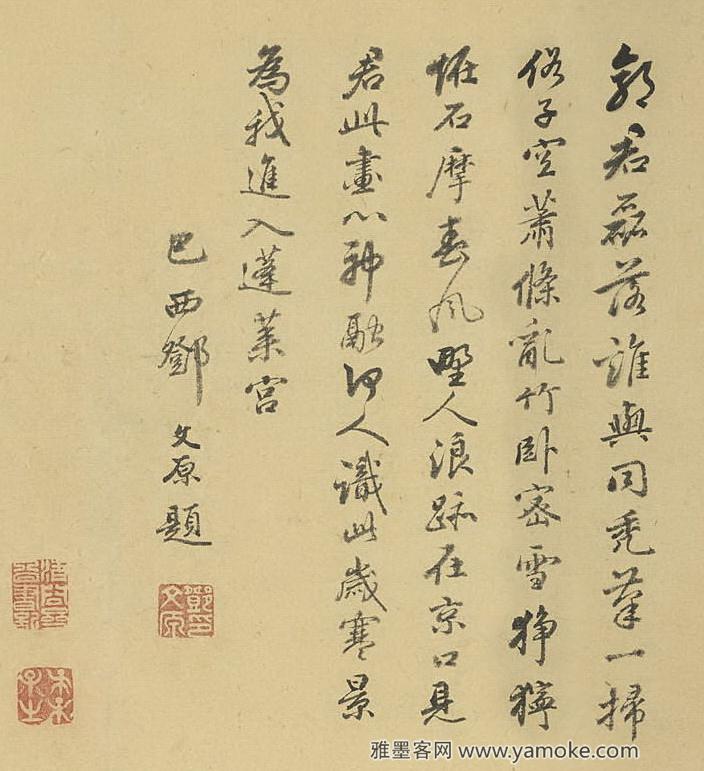 郭君磊落誰與同秃筆一掃
俗子空蕭條亂竹卧密雪狰獰
恠石摩春風野人浪跡在京口見
君此畫心神融何人識此歲寒景
為我進入蓬萊宮
巴西鄧文原題
鄧文原印
雅墨客网 www.yamoke.com